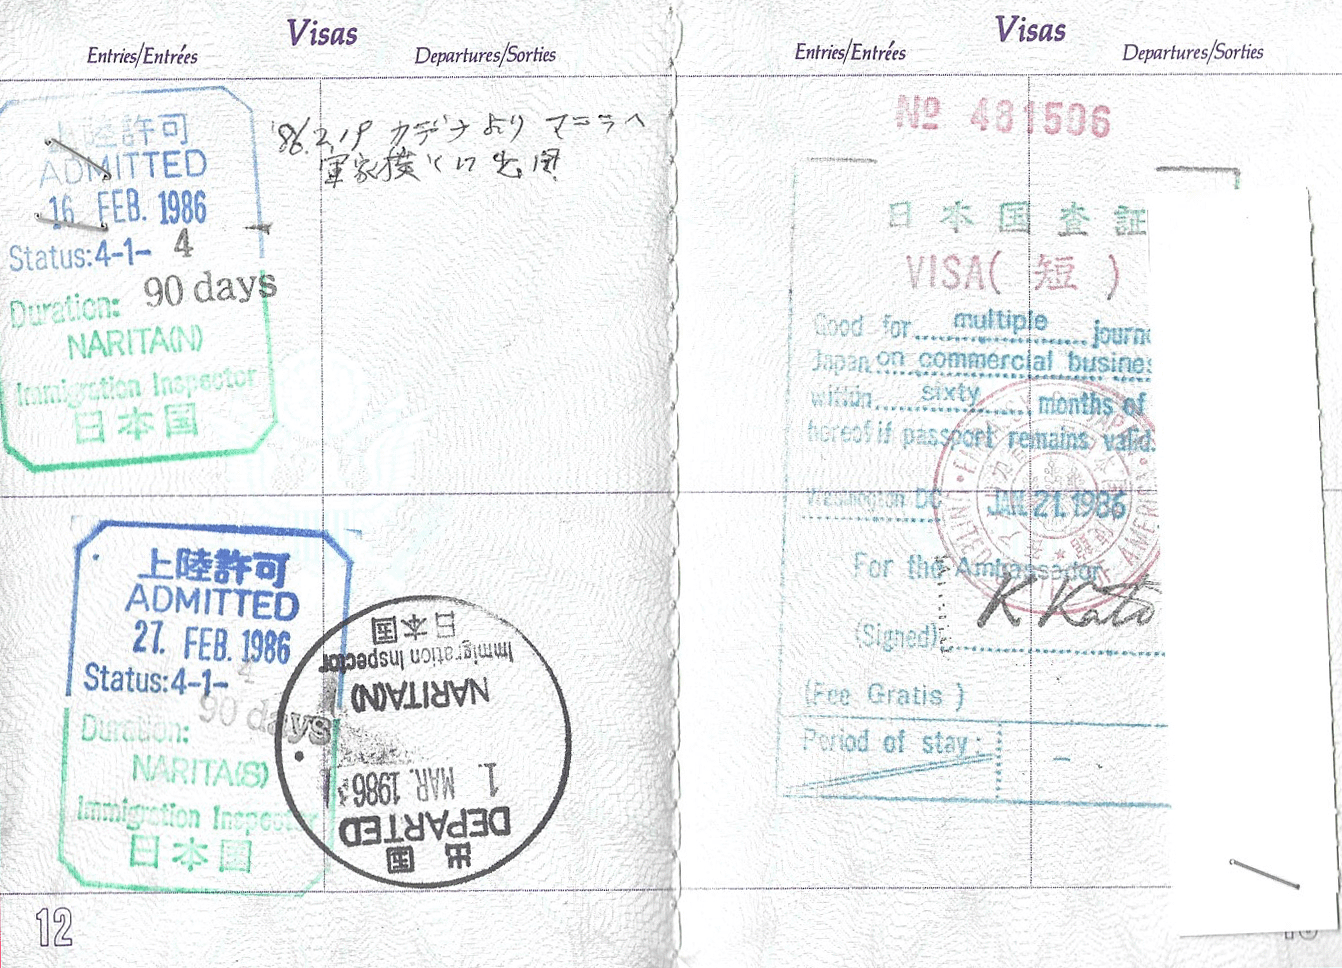 Visas
Entries/Entrées
Departures/Sorties
上陸許可
ADMITTED
16 FEB. 1986
Status:4-1- 4
90 days
Duration:
NARITA(N)
Immigration Inspector
日本国
'86.2.19 カデナより マニラへ
上陸許可
ADMITTED
27. FEB. 1986
Status:4-1- 4
90 days
Duration:
NARITA(S)
Immigration Inspector
日本国
日本国
Immigration Inspector
NARITA(N)
1. MAR. 1986
DEPARTED
出国
12
Visas
Entries/Entrées
Departures/Sorties
Nº 481506
日本国査証
VISA( 短 )
Good for multiple journe
Japan on commercial busines
within sixty months of
hereof if passport remains valid.
Washington DC JAN. 21. 1986
For the Ambassador
K Kato
(Signed)
(Fee Gratis )
Period of stay: –